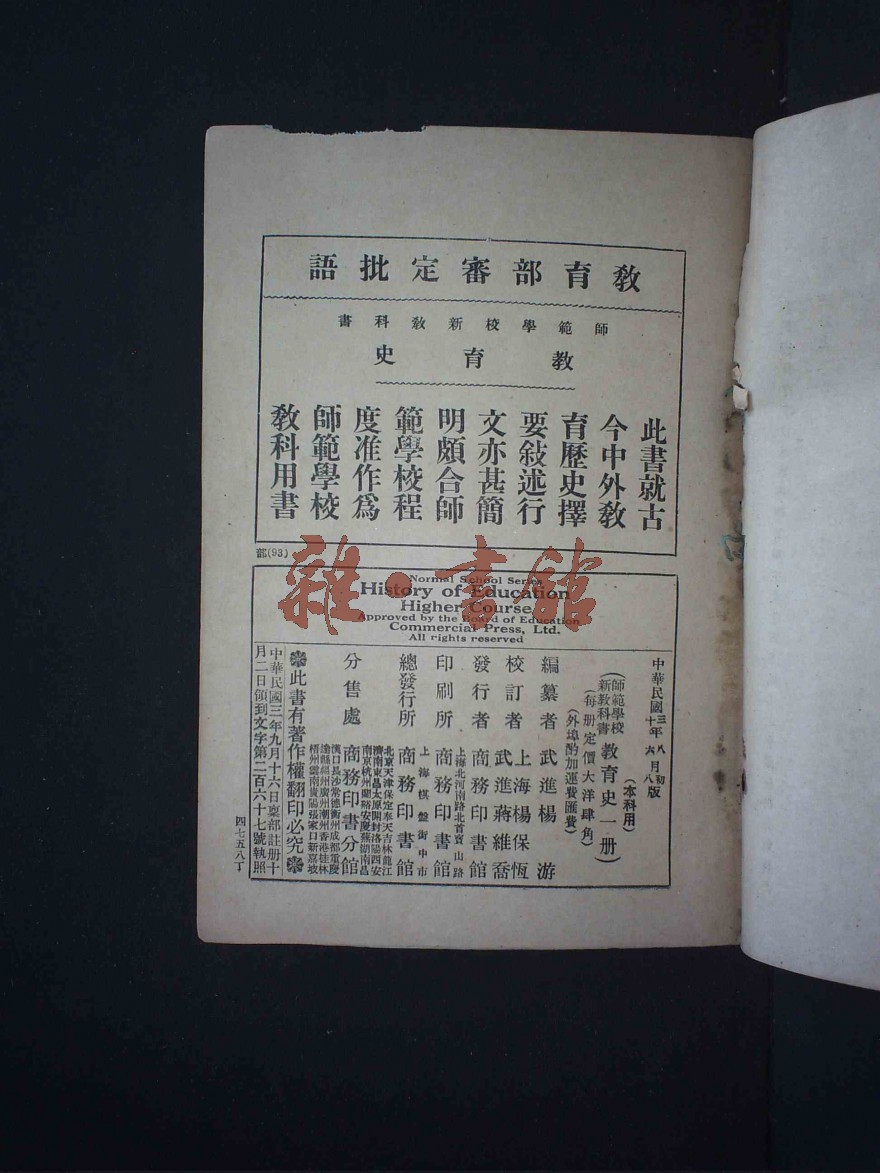 教育部審定批語
師範學校新教科書
教育史
此書就古
今中外教
育歷史擇
要敍述行
文亦甚簡
明頗合師
範學校程
度准作爲
師範學校
教科用書
部(93)
Normal School Series
History of Education
Higher Course
Approved by the Board of Education
Commercial Press, Ltd.
All rights reserved
雜·書館
中華民國三年八月初版
十年六月八版
(本科用)
(師範學校新教科書 教育史一册)
(每册定價大洋肆角)
(外埠酌加運費匯費)
編纂者 武進楊游
校訂者 上海楊保恆
武進蔣維喬
發行者 商務印書館
上海北河南路北首寶山路
印刷所 商務印書館
上海棋盤街中市
總發行所 商務印書館
北京天津保定奉天吉林龍江
濟南東昌太原開封洛陽西安
南京杭州蘭谿安慶蕪湖南昌
分售處 商務印書分館
漢口長沙常德衡州成都重慶
瀘縣福州廣州潮州香港桂林
梧州雲南貴陽張家口新嘉坡
此書有著作權翻印必究
中華民國三年九月十六日稟部註册十
月二日領到文字第二百六十七號執照
四七五八丁